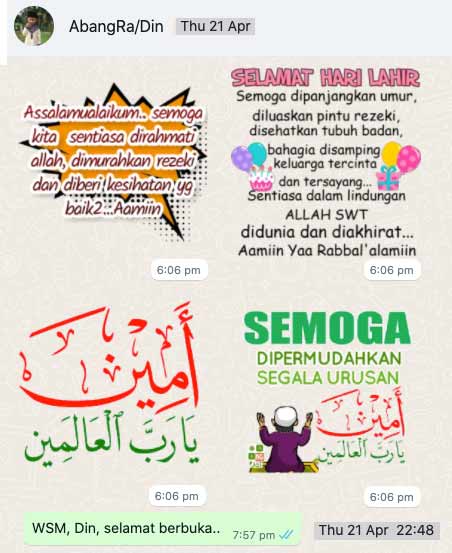 AbangRa/Din Thu 21 Apr
Assalamualaikum.. semoga
kita sentiasa dirahmati
allah, dimurahkan rezeki
dan diberi kesihatan yg
baik2...Aamiin
6:06 pm
SELAMAT HARI LAHIR
Semoga dipanjangkan umur,
diluaskan pintu rezeki,
disehatkan tubuh badan,
bahagia disamping
keluarga tercinta
dan tersayang...
Sentiasa dalam lindungan
ALLAH SWT
didunia dan diakhirat...
Aamiin Yaa Rabbal'alamiin
6:06 pm
أَمِين
يَا رَبَّ الْعَالَمِين
6:06 pm
SEMOGA
DIPERMUDAHKAN
SEGALA URUSAN
أَمِين
يَا رَبَّ الْعَالَمِين
6:06 pm
WSM, Din, selamat berbuka.. 7:57 pm
Thu 21 Apr 22:48